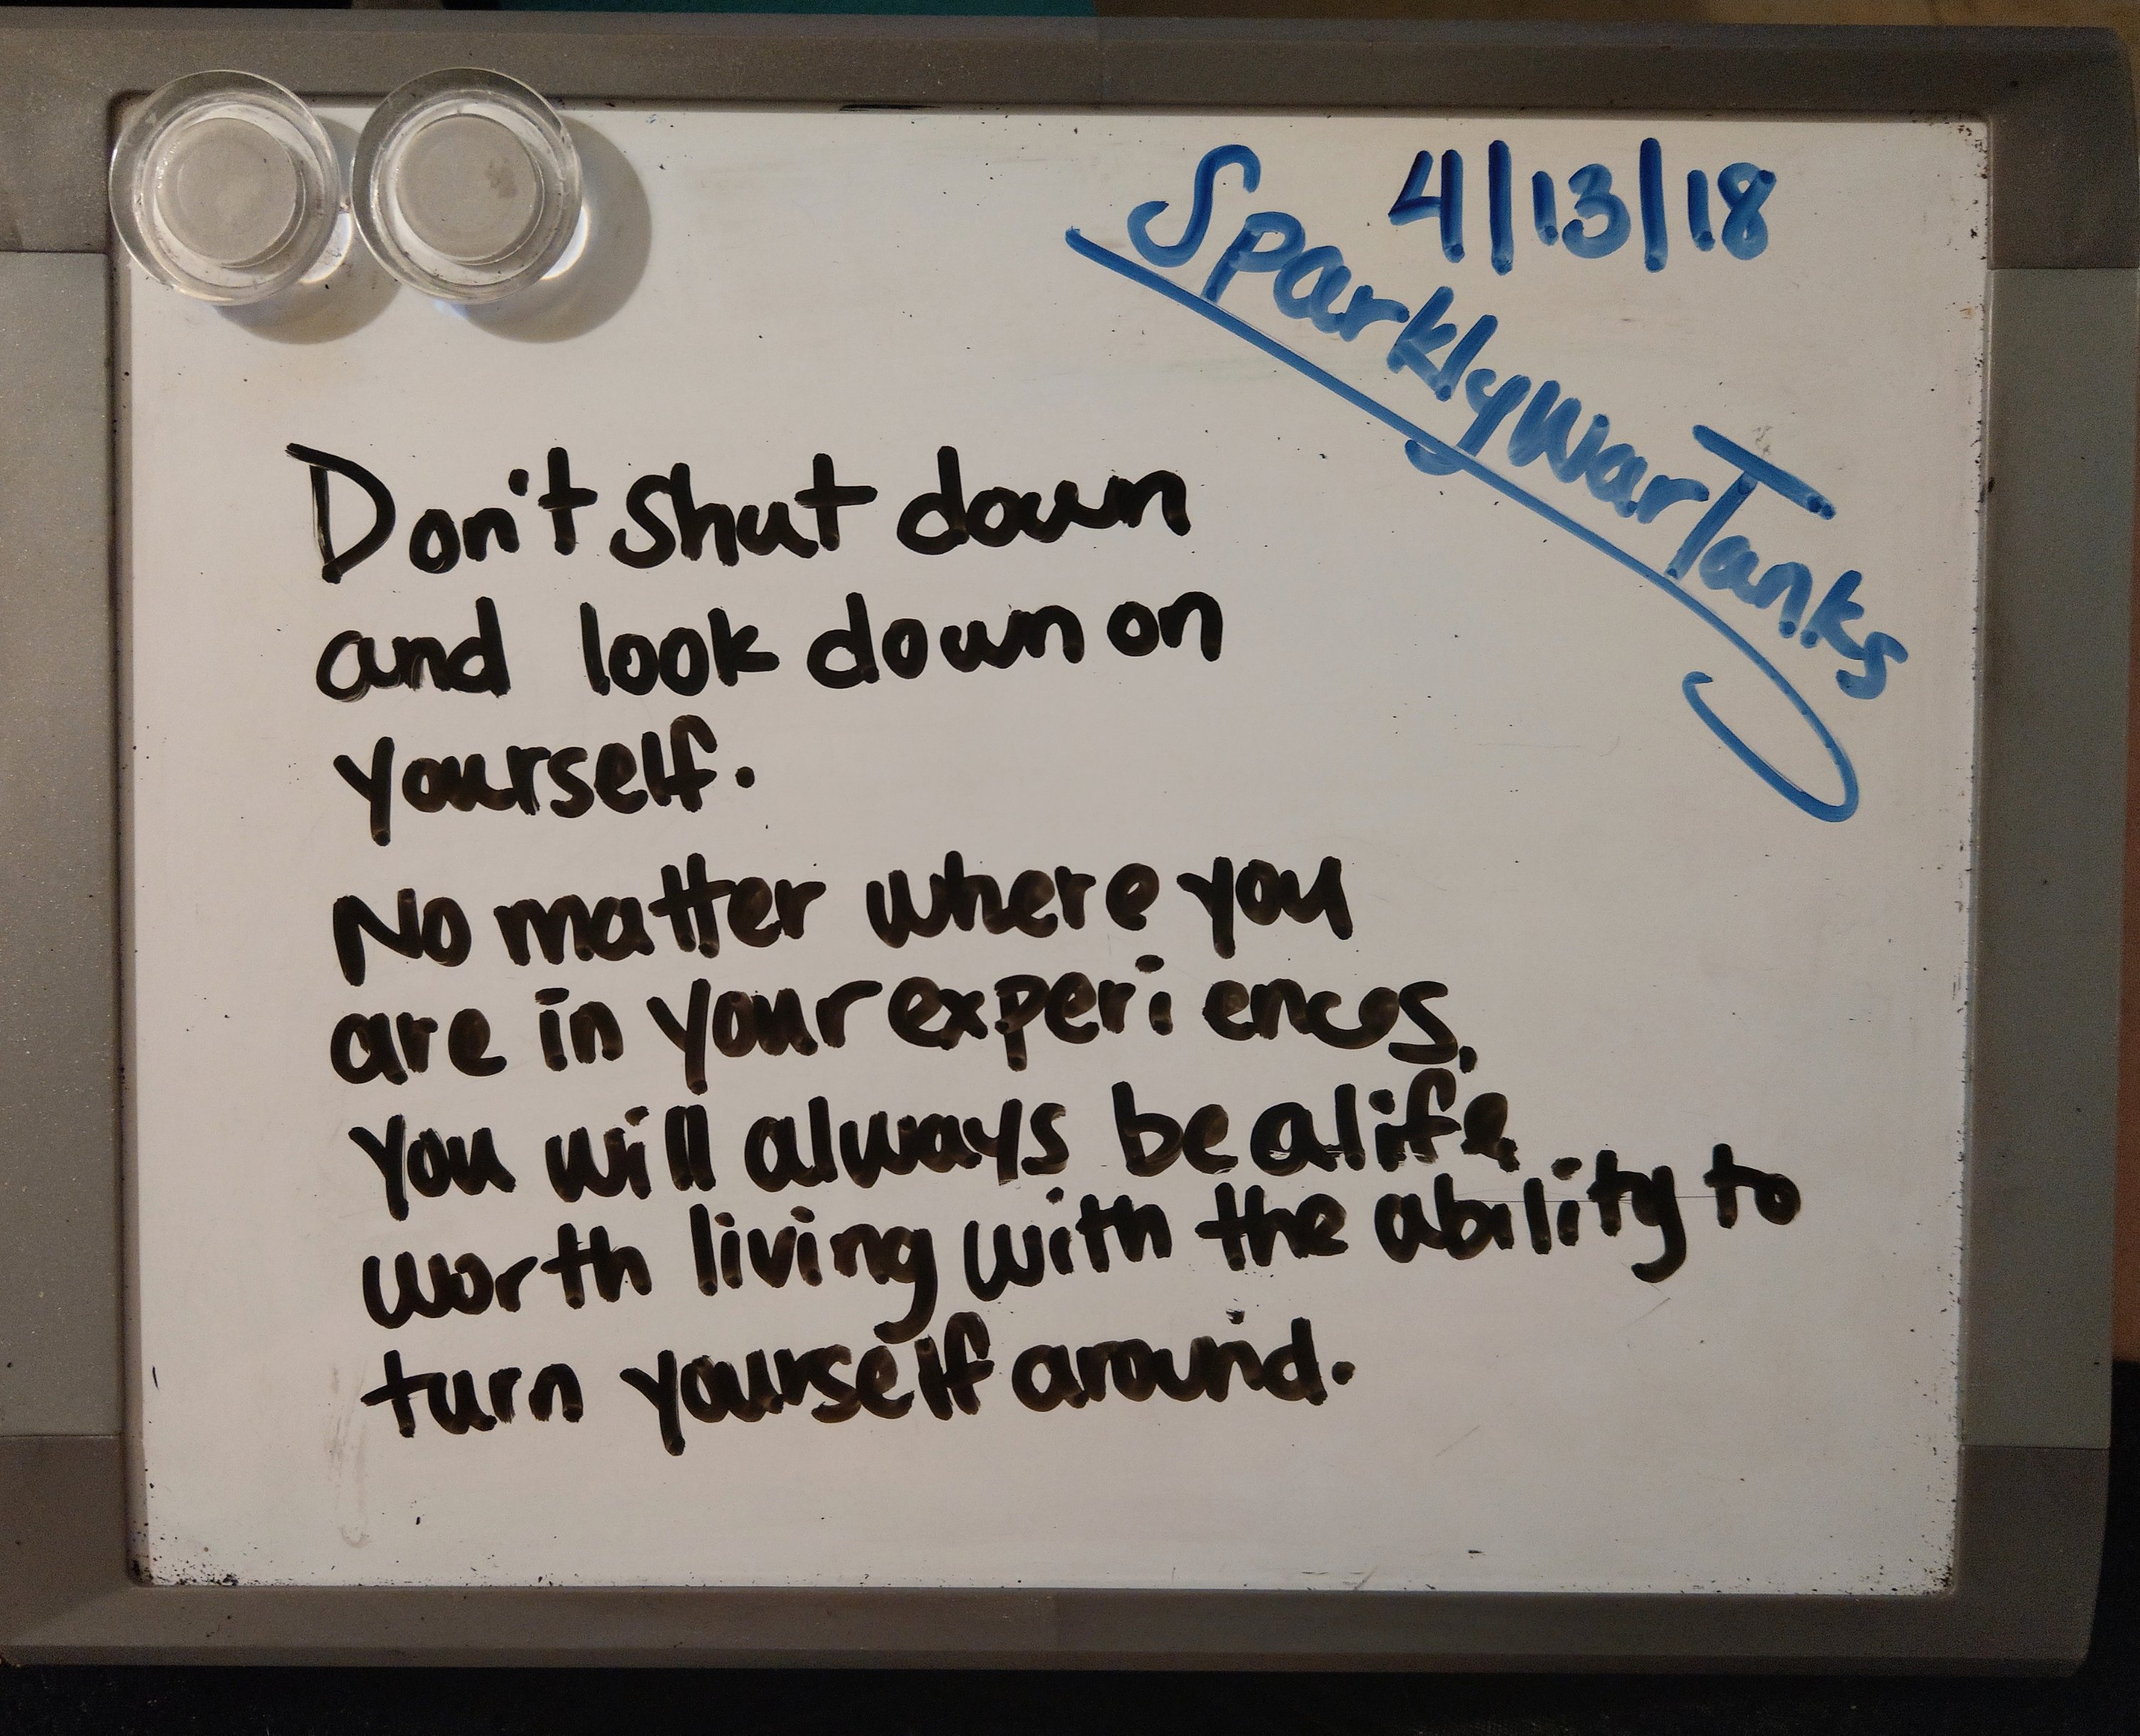 4/13/18
SparklyWarTanks
Don't shut down
and look down on
yourself.
No matter where you
are in your experiences,
you will always be a life
worth living with the ability to
turn yourself around.